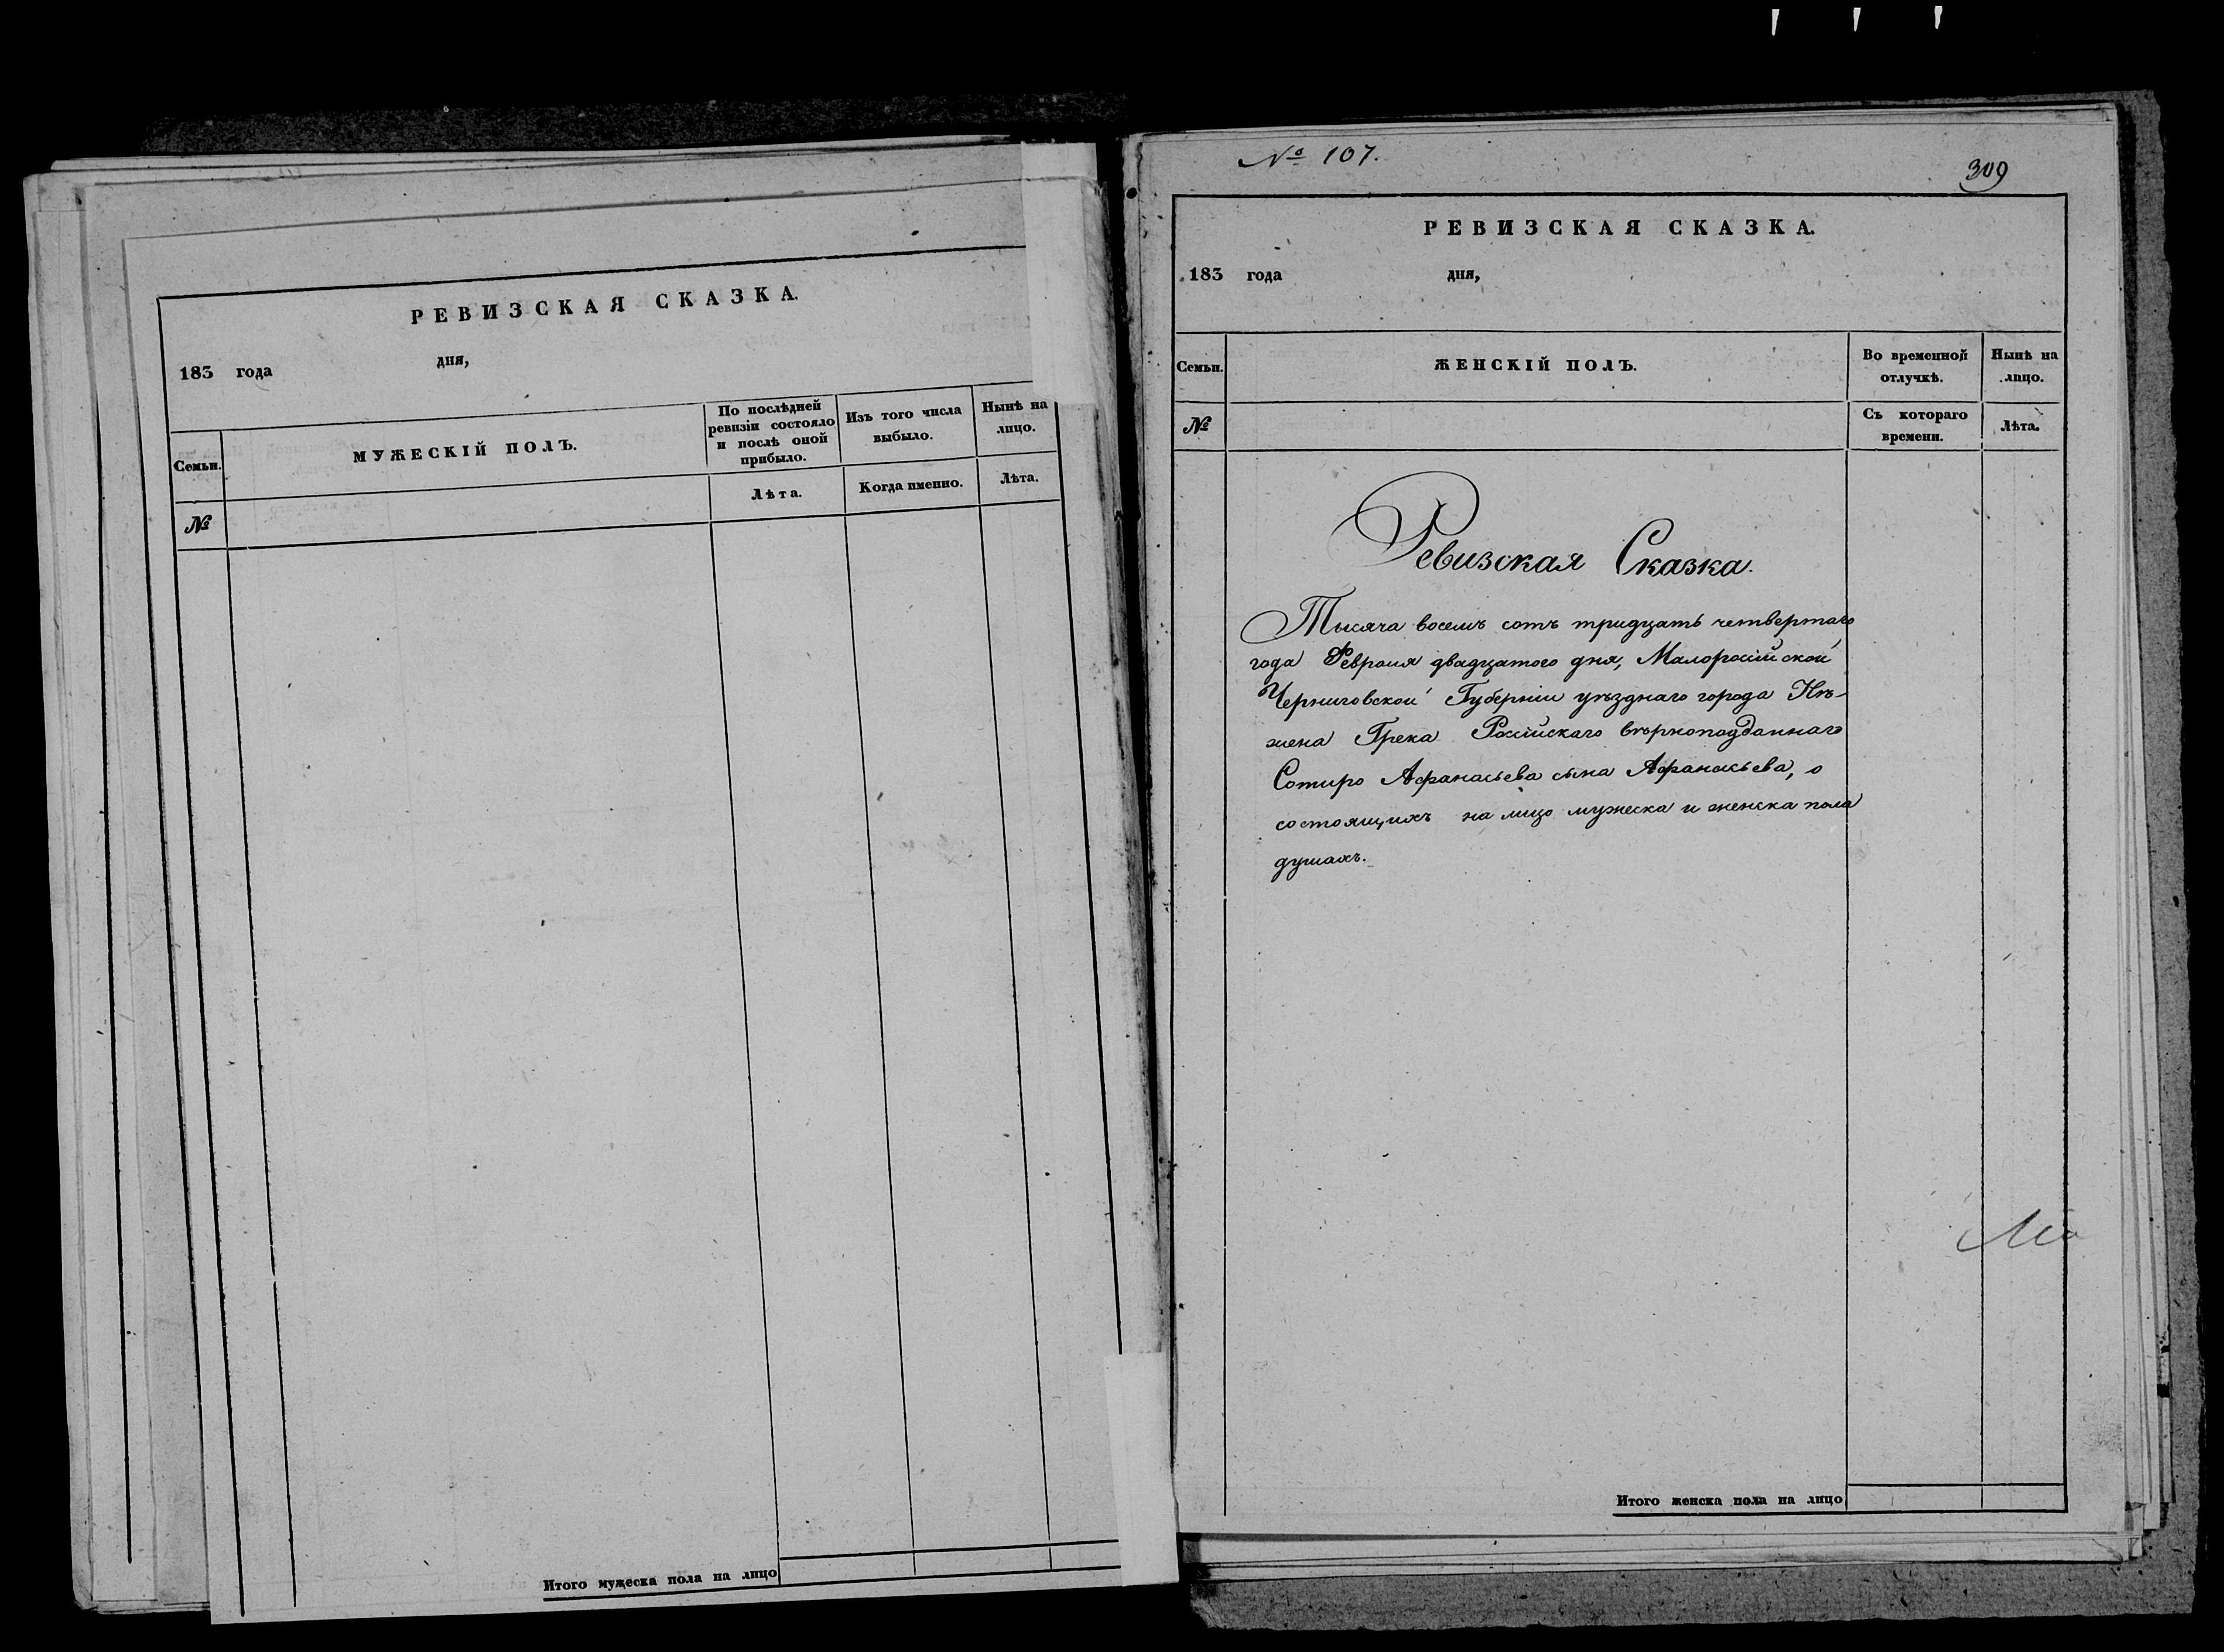 РЕВИЗСКАЯ СКАЗКА.
183 года дня,
Семьи.
МУЖЕСКІЙ ПОЛЪ.
По послѣдней
ревизіи состояло
и послѣ оной
прибыло.
Изъ того числа
выбыло.
Нынѣ на
лицо.
№
Лѣта.
Когда именно.
Лѣта.
Итого мужеска пола на лицо
№ 107.
309
РЕВИЗСКАЯ СКАЗКА.
183 года дня,
Семьи.
ЖЕНСКІЙ ПОЛЪ.
Во временной
отлучкѣ.
Нынѣ на
лицо.
№
Съ котораго
времени.
Лѣта.
Ревизская Сказка.
Тысяча восемъ сотъ тридцать четвертаго
года Февраля двадцатого дня, Малоросiйской
Черниговской Губерніи уѣзднаго города Нѣ-
жена Грека Росiйскаго вѣрноподданнаго
Сотиро Афанасьева сына Афанасьева, о
состоящихъ на лицо мужеска и женска пола
душахъ.
Итого женска пола на лицо